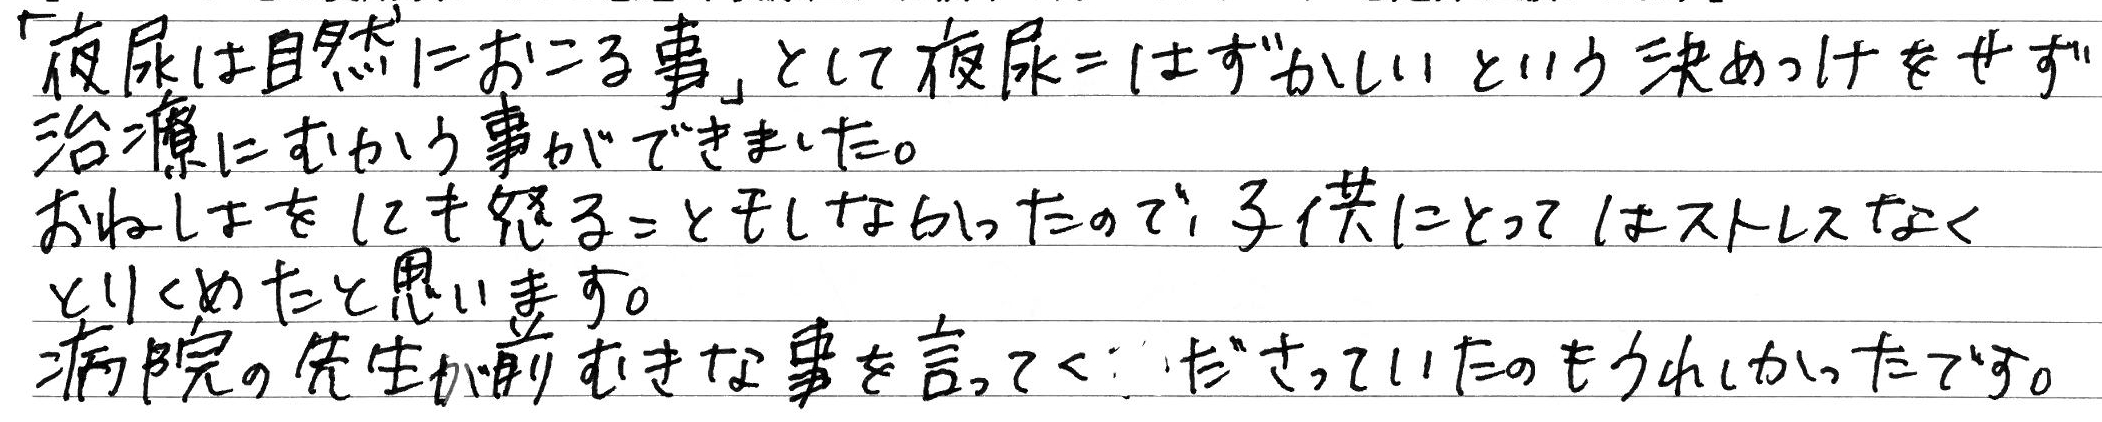 「夜尿は自然におこる事」として夜尿=はずかしいという決めつけをせず
治療にむかう事ができました。
おねしょをしても怒ることもしなかったので、子供にとってはストレスなく
とりくめたと思います。
病院の先生が前むきな事を言ってくださっていたのもうれしかったです。